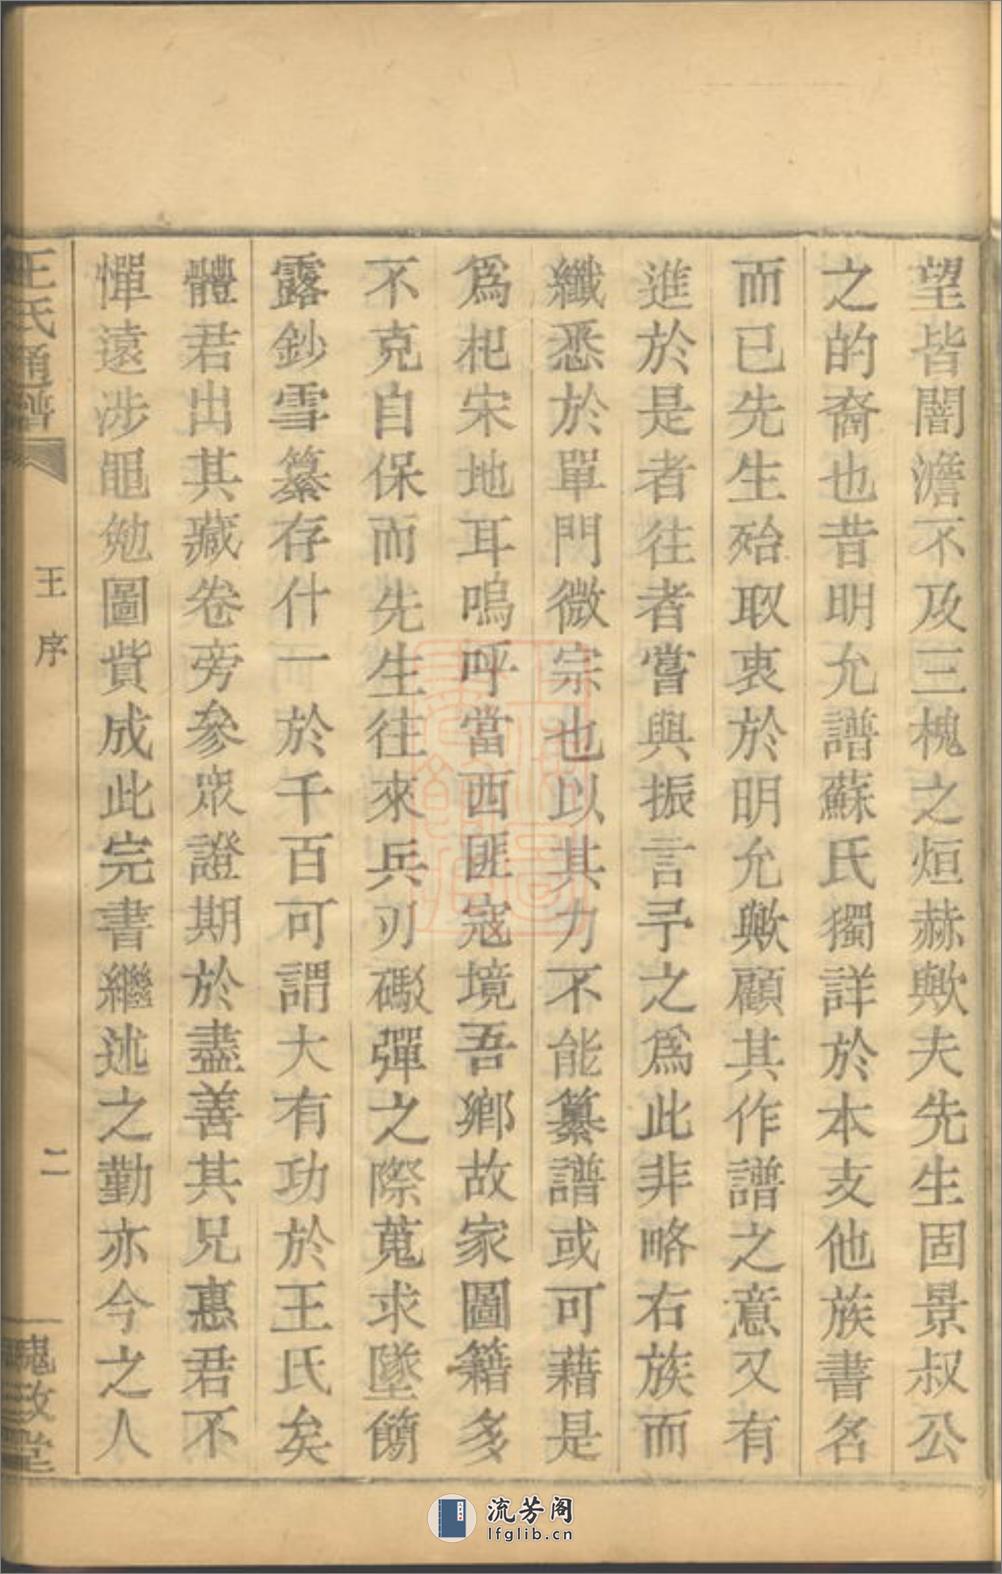 望皆闇澹不及三槐之烜赫歟夫先生固景叔公
之的裔也昔明允譜蘇氏獨詳於本支他族書名
而已先生殆取衷於明允歟顧其作譜之意又有
進於是者往者嘗與振言予之爲此非略右族而
纖悉於單門微宗也以其力不能纂譜或可藉是
爲杞宋地耳嗚呼當西匪寇境吾鄉故家圖籍多
不克自保而先生往來兵刃礮彈之際蒐求墜簡
露鈔雪纂存什一於千百可謂大有功於王氏矣
體君出其藏卷旁參眾證期於盡善其兄惠君不
憚遠涉黽勉圖貲成此完書繼述之勤亦今之人
王氏通譜
王序
二
槐政堂
流芳阁
lfglib.cn